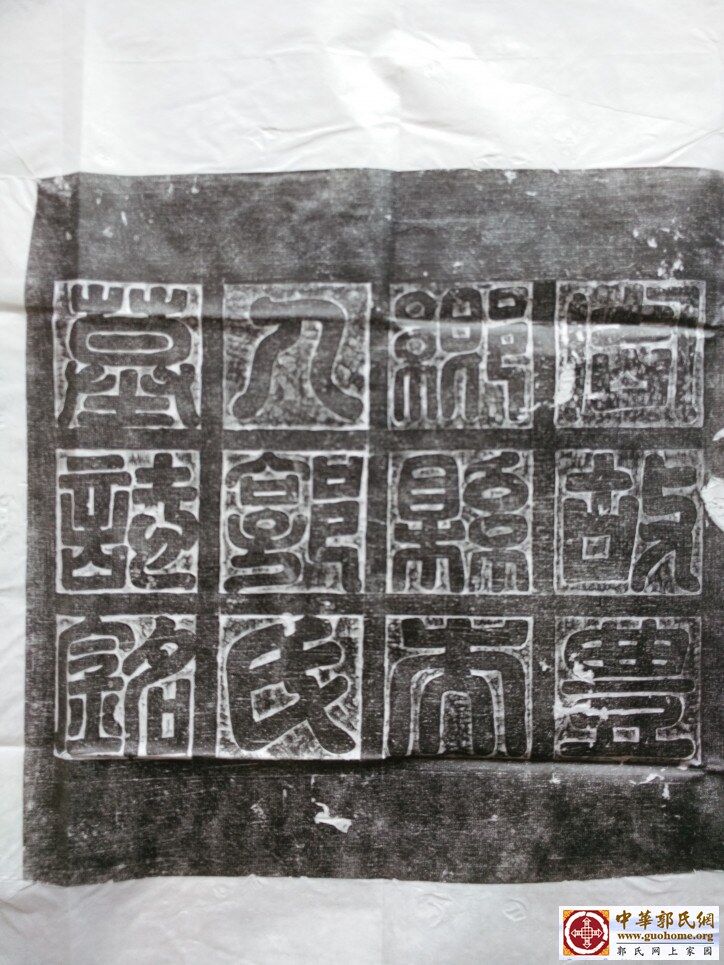 故豊
鄉縣夫
人郭氏
墓誌銘
中華郭氏網
www.guohome.org
郭氏网上家园